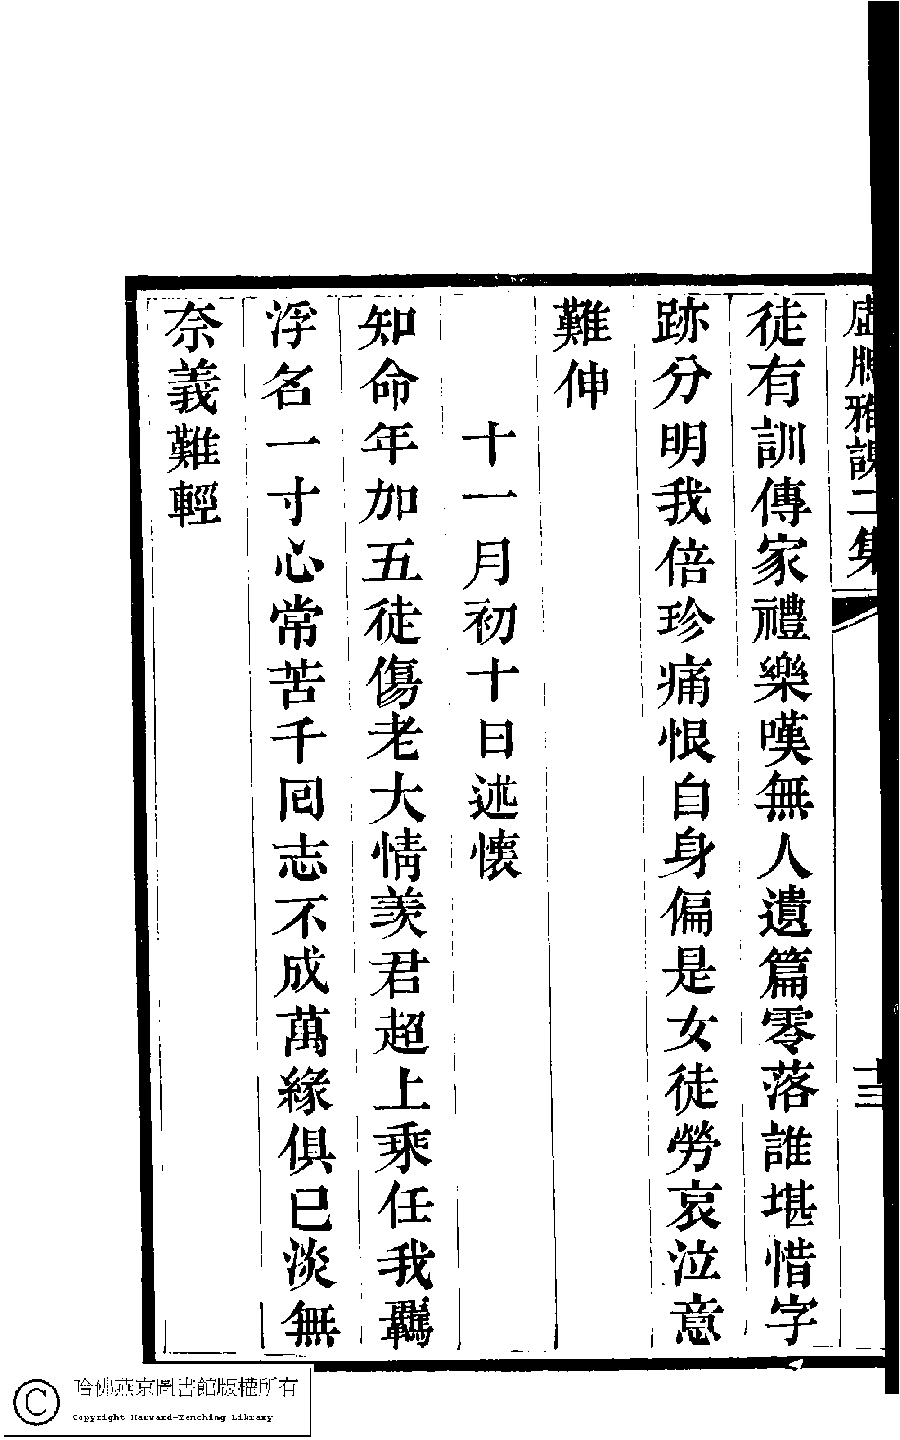 虛牕雅課二集
十三
徒有訓傳家禮樂嘆無人遺篇零落誰堪惜字
跡分明我倍珍痛恨自身偏是女徒勞哀泣意
難伸
十一月初十日述懷
知命年加五徒傷老大情羨君超上乘任我羈
浮名一寸心常苦千囘志不成萬緣俱已淡無
奈義難輕
哈佛燕京圖書館版權所有
Copyright Harvard-Yenching Library